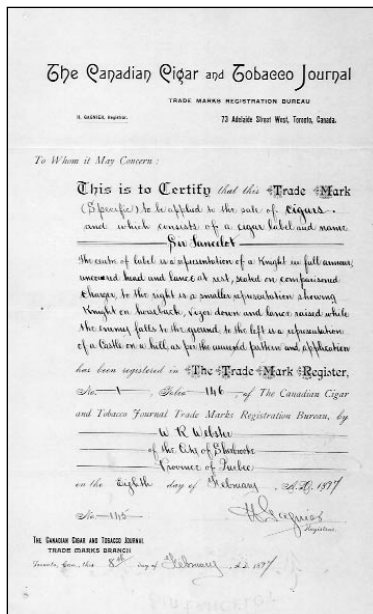 The Canadian Cigar and Tobacco Journal
TRADE MARKS REGISTRATION BUREAU
H. GAGNIER, Registrar.
73 Adelaide Street West, Toronto, Canada.
To Whom it May Concern:
This is to Certify that this Trade Mark
(Specific) to be applied to the sale of Cigars.
and which consists of a cigar label and name
Sir Lancelot
The centre of label is a representation of a Knight in full armour,
uncovered head and lance at rest, seated on comparisoned
charger, to the right is a smaller representation showing
Knight on horseback, vizor down and lance raised while
the enemy falls to the ground, to the left is a representation
of a Castle on a hill, as per the annexed pattern and application
has been registered in The Trade Mark Register,
No. 1, Folio 146, of The Canadian Cigar
and Tobacco Journal Trade Marks Registration Bureau, by
W R Webster
of the City of Sherbrooke
Province of Quebec
on the Eighth day of February A.D. 1897
No. 145
H Gagnier
Registrar.
THE CANADIAN CIGAR AND TOBACCO JOURNAL
TRADE MARKS BRANCH
Toronto, Can., this 8th day of February A.D. 1897